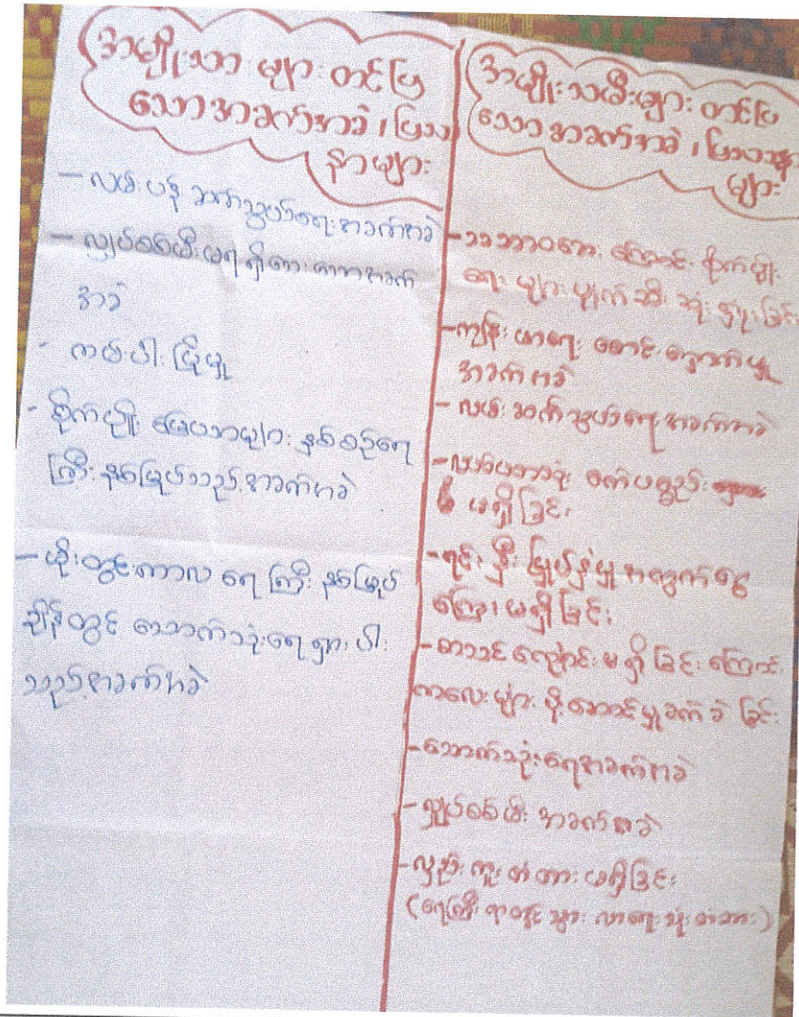 အမျိုးသား များ တင်ပြ
သောအခက်အခဲ ၊ ပြဿ
နာများ
– လမ်းပန်း ဆက်သွယ်ရေး အခက်အခဲ
– လျှပ်စစ်မီး မရရှိသော အခက်
အခဲ
- ကမ်းပါး ပြိုမှု
- စိုက်ပျိုး မြေယာများ နှစ်စဉ်ရေ
ကြီး နစ်မြုပ်သည့် အခက်အခဲ
– မိုးတွင်းကာလ ရေကြီး နစ်မြုပ်
ချိန်တွင် သောက်သုံးရေ ရှားပါး
သည့်အခက်အခဲ
အမျိုးသမီးများ တင်ပြ
သော အခက်အခဲ ၊ ပြဿနာ
များ
– သဘာဝဘေး ကြောင့် စိုက်ပျိုး
ရေး များ ပျက်စီး ဆုံးရှုံး ခြင်း
– ကျန်းမာရေး စောင့်ရှောက်မှု
အခက်အခဲ
– လမ်းဆက်သွယ်ရေး အခက်အခဲ
– လယ်ယာသုံး စက်ပစ္စည်း
မရှိခြင်း
– ရင်းနှီးမြှုပ်နှံမှု အတွက် ငွေ
ကြေး မရှိခြင်း
– စာသင်ကျောင်း မရှိ ခြင်း ကြောင့်
ကလေးများ ပို့ဆောင်မှု ခက်ခဲ ခြင်း
– သောက်သုံးရေအခက်အခဲ
– လျှပ်စစ်မီး အခက်အခဲ
– လူကူး တံတား မရှိခြင်း
(ရေကြီး ရာတွင် သွား လာရေး သုံး တံတား)